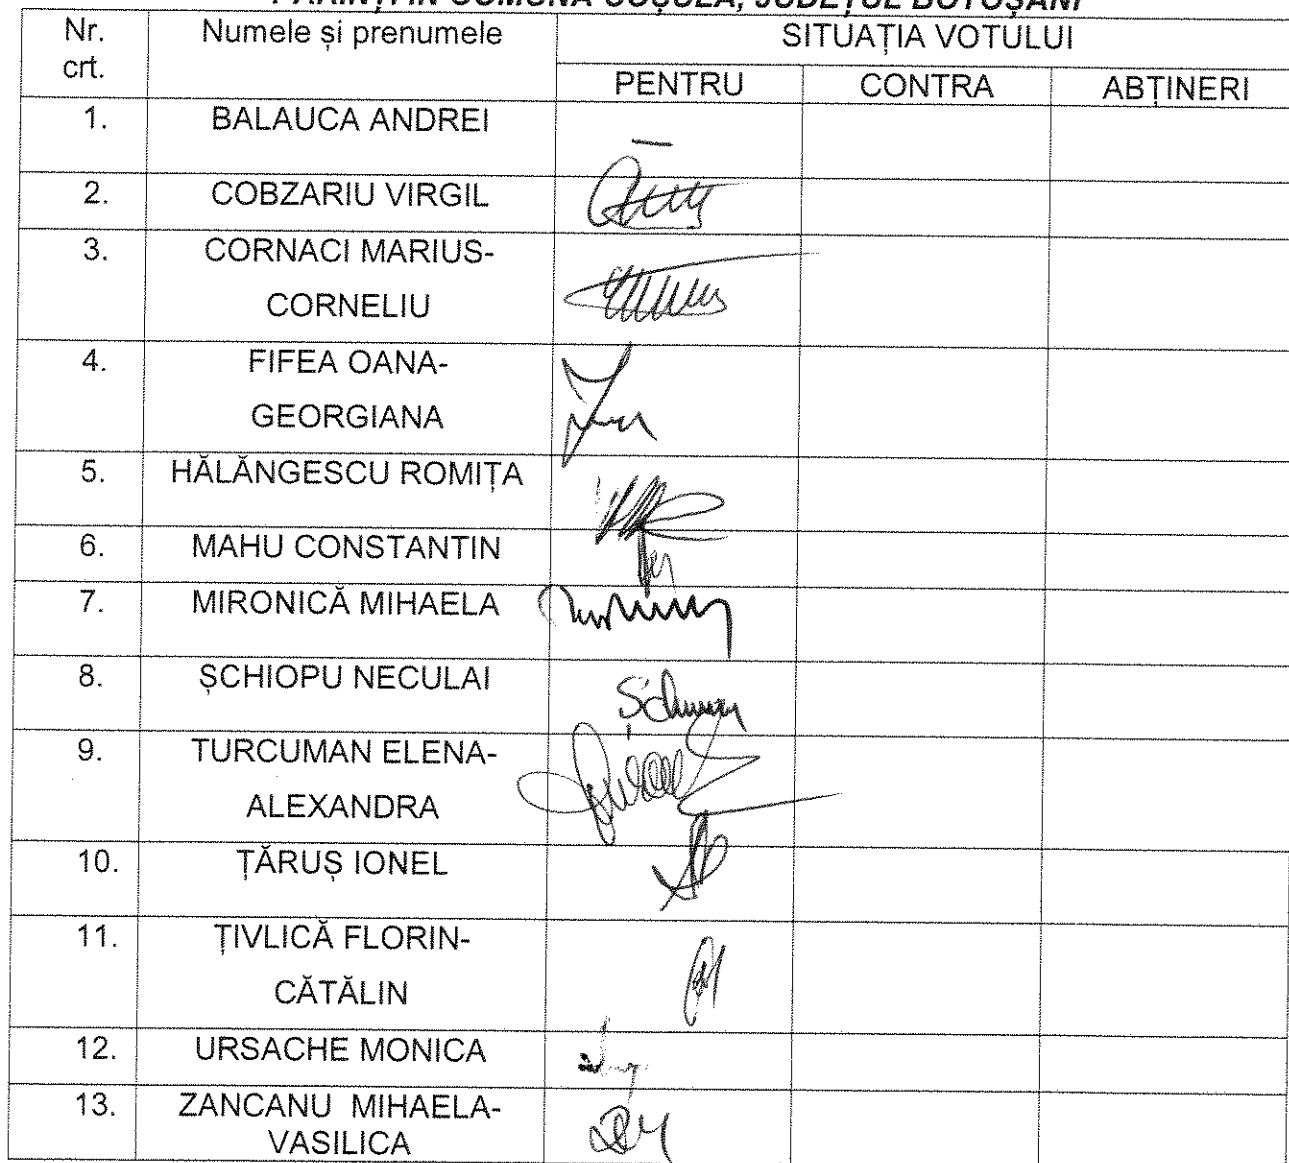 PĂRINȚI ÎN COMUNA COȘULA, JUDEȚUL BOTOȘANI
Nr. crt. Numele și prenumele SITUAȚIA VOTULUI
PENTRU CONTRA ABȚINERI
1. BALAUCA ANDREI —
2. COBZARIU VIRGIL
3. CORNACI MARIUS-
CORNELIU
4. FIFEA OANA-
GEORGIANA
5. HĂLĂNGESCU ROMIȚA
6. MAHU CONSTANTIN
7. MIRONICĂ MIHAELA
8. ȘCHIOPU NECULAI
9. TURCUMAN ELENA-
ALEXANDRA
10. ȚĂRUȘ IONEL
11. ȚIVLICĂ FLORIN-
CĂTĂLIN
12. URSACHE MONICA
13. ZANCANU MIHAELA-
VASILICA